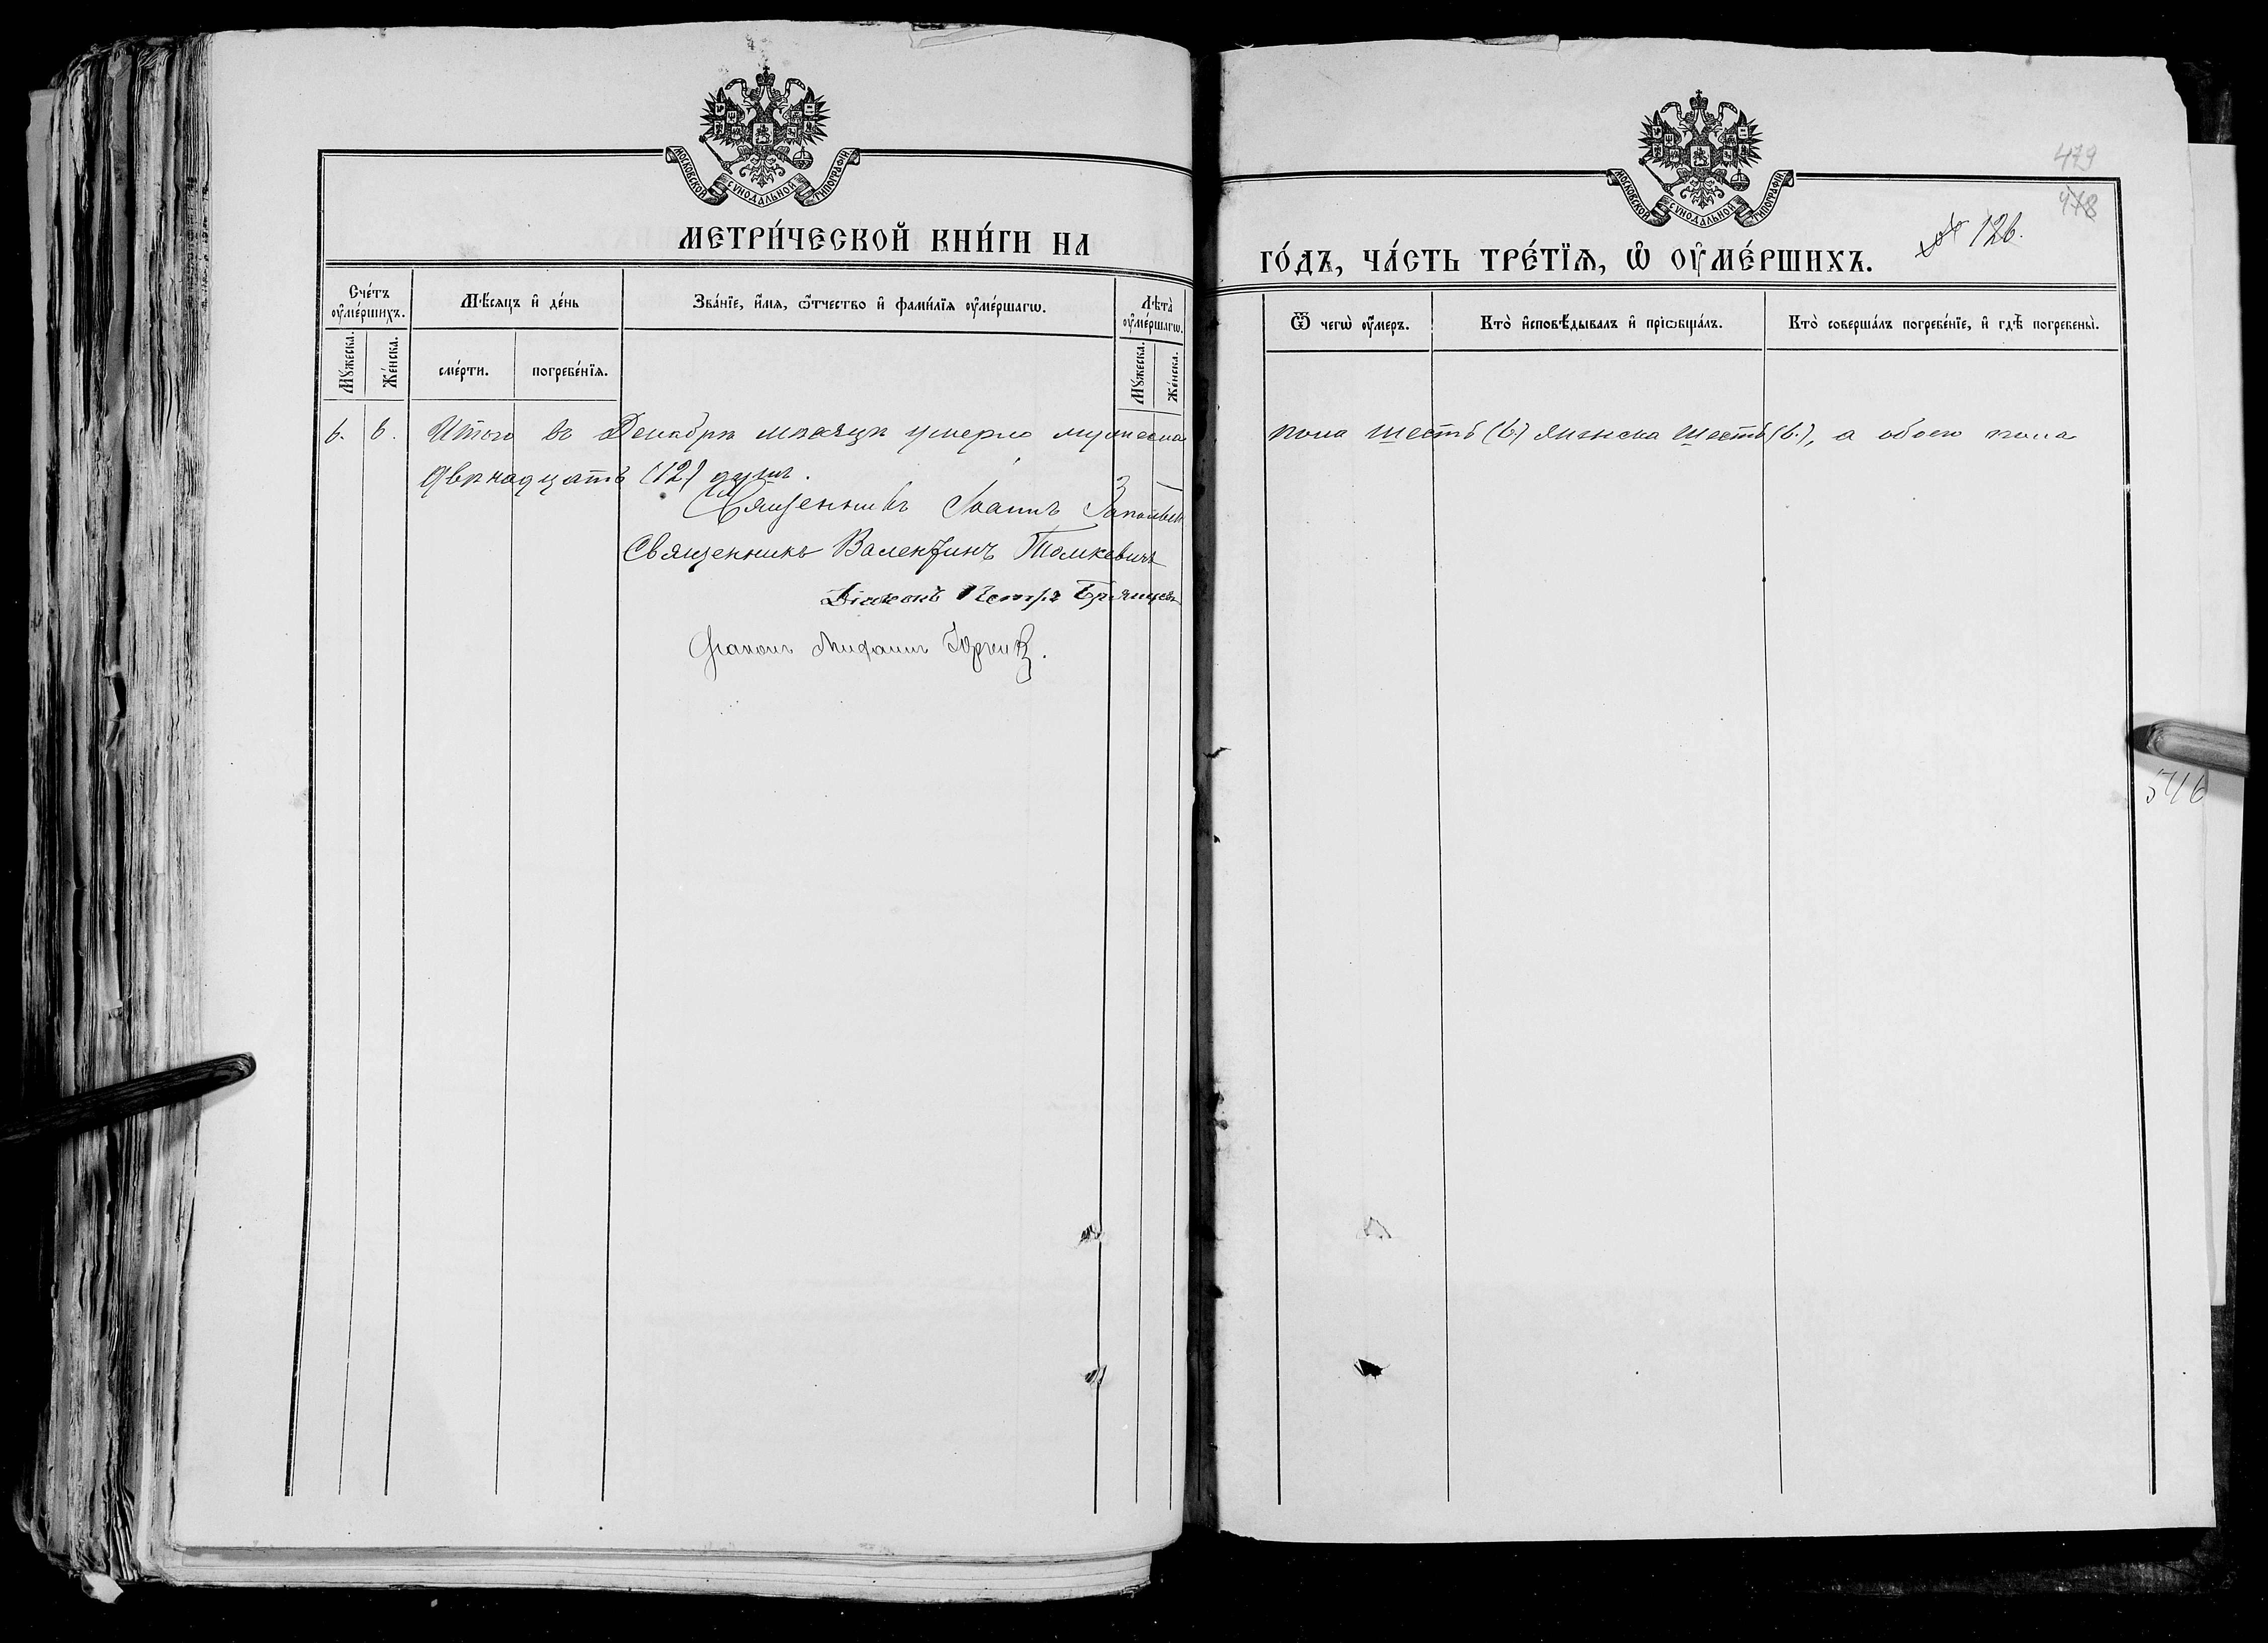 МОСКОВСКОЙ СѴНОДАЛЬНОЙ ТИПОГРАФІИ
МЕТРИ́ЧЕСКОЙ КНИ́ГИ НА
Сче́тъ оумершихъ.
Мѣ́сяцъ и де́нь
Зва́нїе, и́мя, ѿтчество и фами́лїя оумершагѡ.
Лѣта̀ оумершагѡ.
Мꙋжеска.
Же́нска.
сме́рти.
погребе́нїя.
Мꙋжеска.
Же́нска.
6. 6. Итого въ Декабрѣ мѣсяцѣ умерло мужеска
двѣнадцать (12) душъ.
Священникъ Іоаннъ
Священникъ Валентинъ Томкевичъ
Діаконъ Петръ
Діаконъ
МОСКОВСКОЙ СѴНОДАЛЬНОЙ ТИПОГРАФІИ
479
478
126.
ГО́ДЪ, ЧА́СТЬ ТРЕ́ТЇѦ, Ѡ ОУМЕ́РШИХЪ.
Ѿ чегѡ̀ оумеръ.
Кто̀ исповѣ́дывалъ и прїѡбща́лъ.
Кто̀ соверша́лъ погребе́нїе, и гдѣ̀ погребены̀.
пола шесть (6) женска шесть (6.), а обоего пола
546